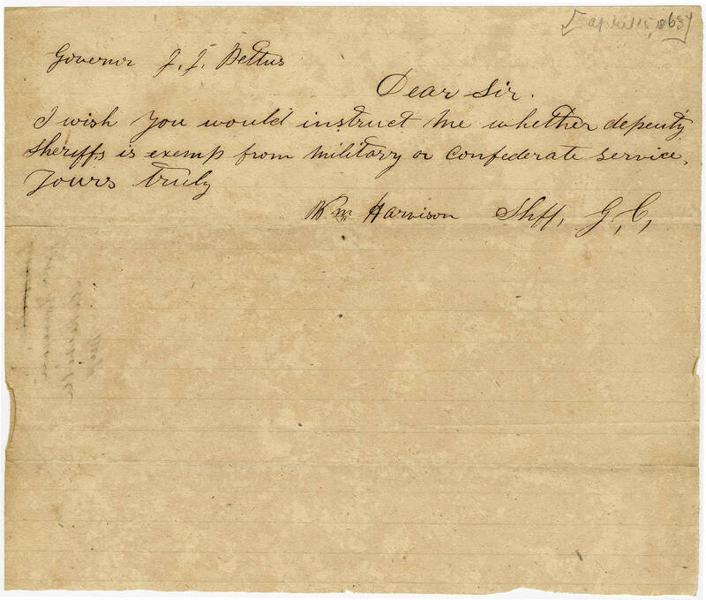 [april 15, 1863]
Governor J. J. Pettus
Dear Sir.
I wish you would instruct me whether deputy
sheriffs is exemp from military or Confederate service,
yours truly
Wm Harvison Shff, G, C,